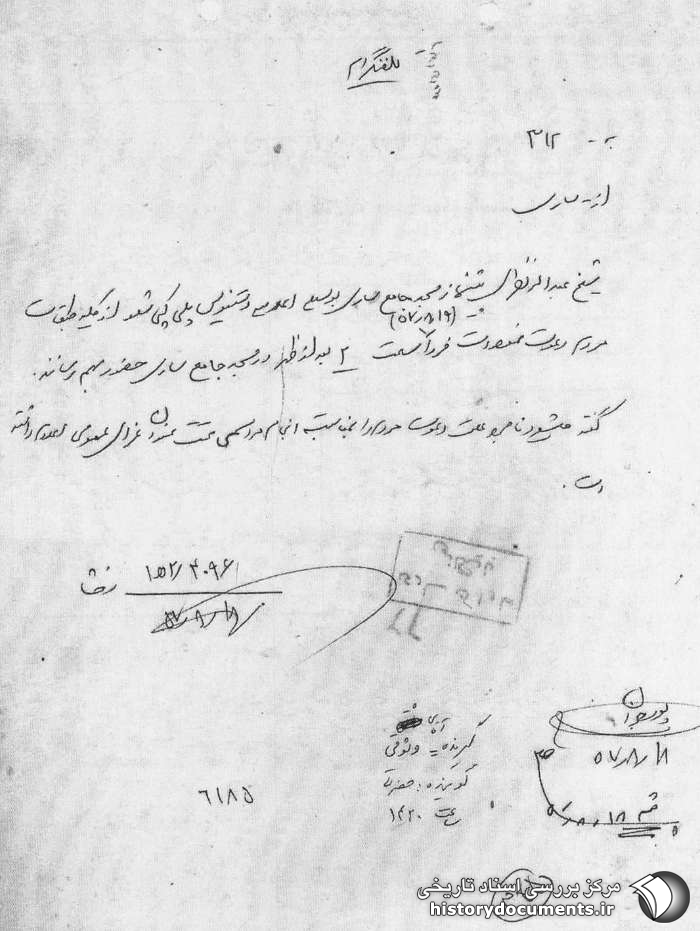 تلفنگرام
به - ۳۱۲
از - ساری
شیخ عبداله نظری پیشنماز مسجد جامع ساری بوسیله اعلامیه دستنویس پلی کپی شده از کلیه طبقات
(۵۷/۸/۱۹)
مردم دعوت نموده است فردا ساعت ۲ بعد از ظهر در مسجد جامع ساری حضور بهم رسانند.
گفته میشود نامبرده علت دعوت مردم را بمناسبت انجام مراسمی تحت عنوان عزای عمومی اعلام داشته
است .
۱۵۲/۴۰۹۶
۵۷/۸/۱۸
گیرنده وثوقی
گوینده: حضرتی
ساعت ۱۴۲۰
۵۷/۸/۱۸
۶۱۸۵
مرکز بررسی اسناد تاریخی
historydocuments.ir